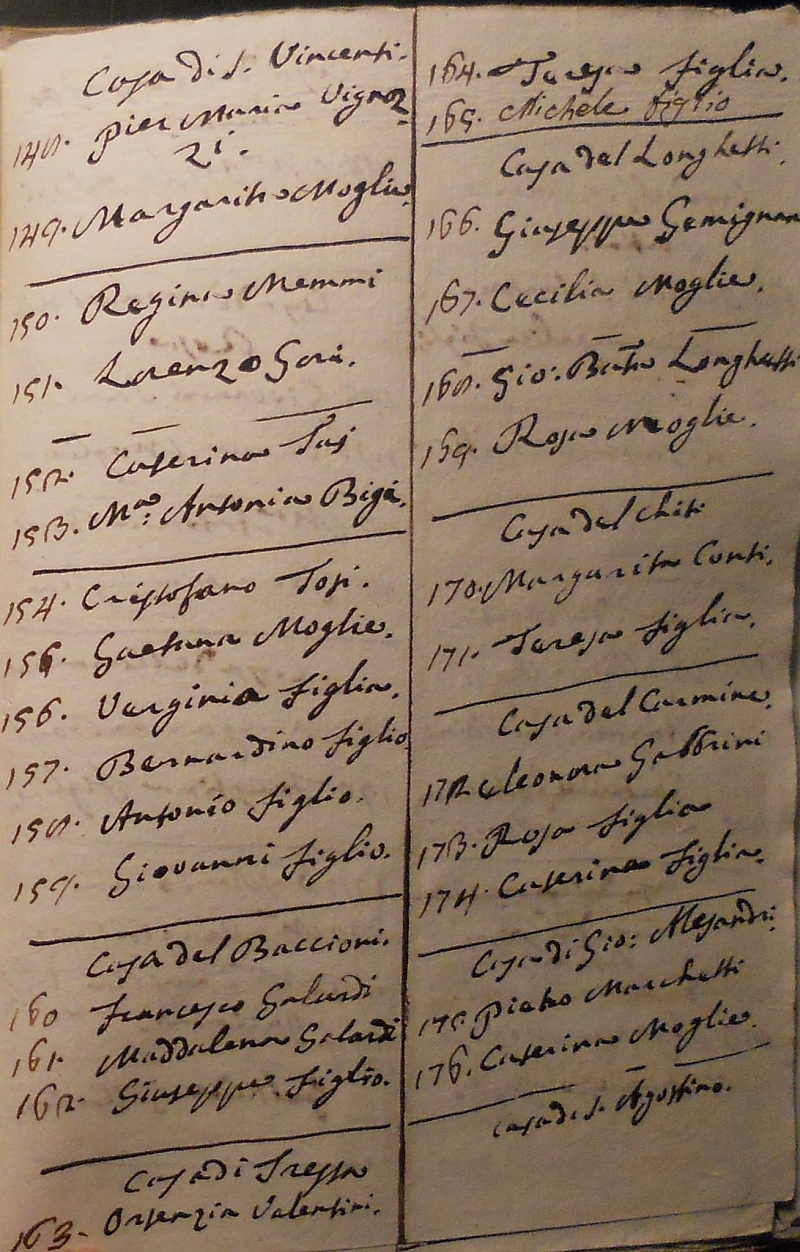 Casa di S. Vincenti.
148. Pier Maria Vignoz
zi.
149. Margarita Moglie.
150. Regina Memmi
151. Lorenzo Gori.
152. Caterina Tasi
153. M.a Antonia Bigi.
154. Cristofano Tosi.
155. Gaetana Moglie.
156. Verginia figlia.
157. Bernardino figlio
158. Antonio figlio.
159. Giovanni figlio.
Casa del Baccioni.
160 Francesco Galardi
161. Maddalena Galardi
162. Giuseppe figlio.
Casa di Tressa
163. Orsenzia Valentini.
164. Teresa figlia.
165. Michele figlio
Casa del Longhetti.
166. Giuseppe Gemignan
167. Cecilia Moglie.
168. Gio: Batta Longhetti
169. Rosa Moglie.
Casa del Chiti
170. Margarita Conti.
171. Teresa figlia.
Casa del Carmine.
172. Eleonora Gabbrini
173. Rosa figlia
174. Caterina figlia.
Casa di Gio: Alesandri.
175. Pietro Marchetti
176. Caterina Moglie.
Casa di S. Agostino.